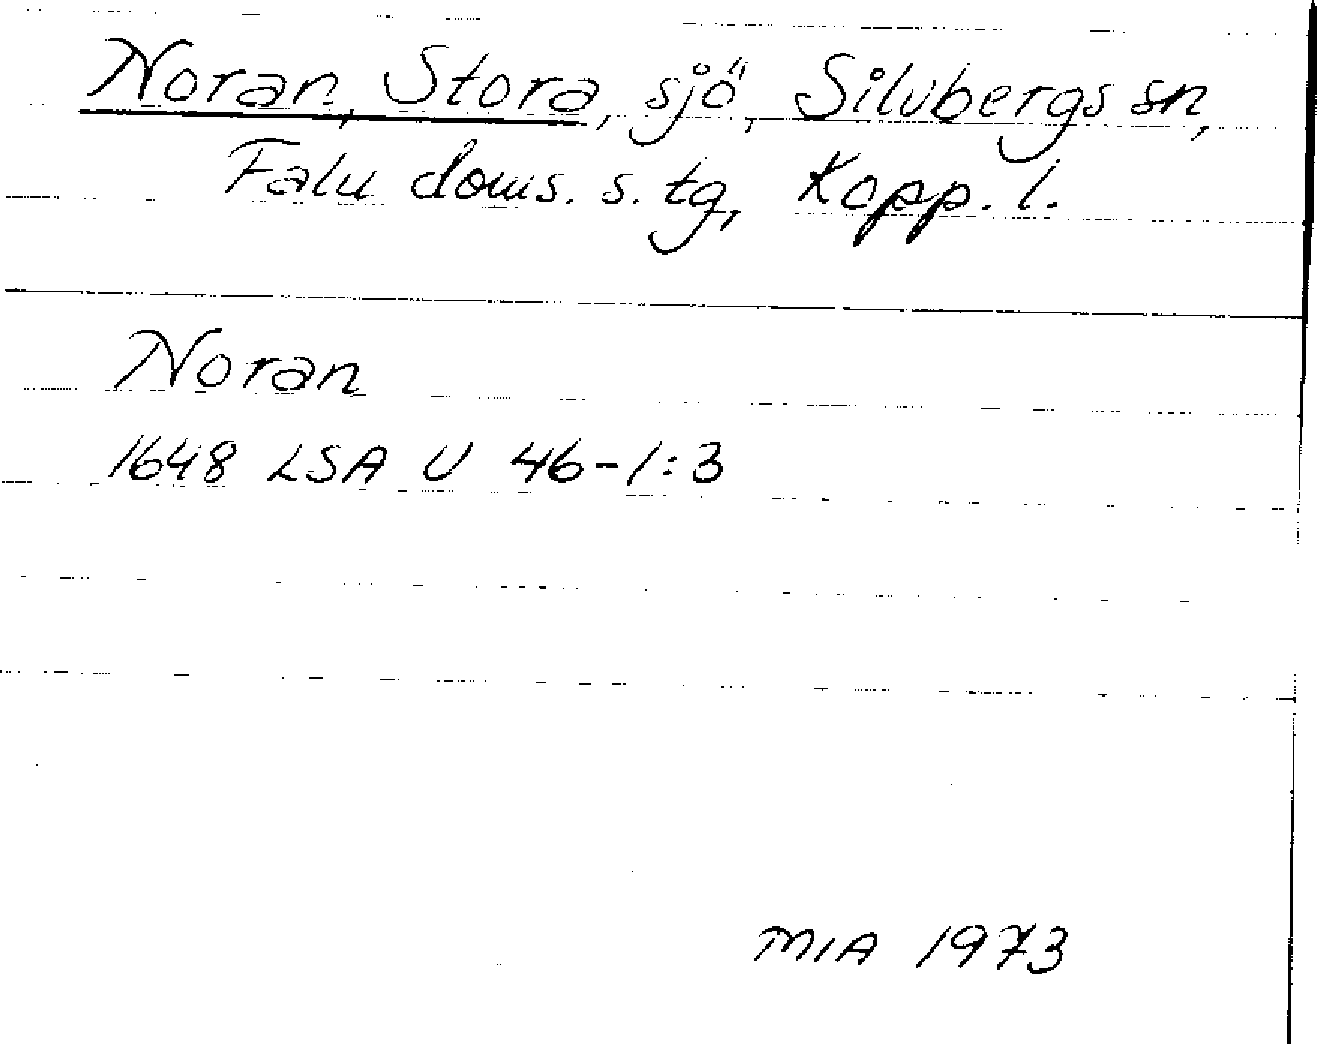 Noran, Stora, sjö, Silvbergs sn,
Falu doms. s. tg, Kopp. l.
Noran
1648 LSA U 46-1:3
MIA 1973